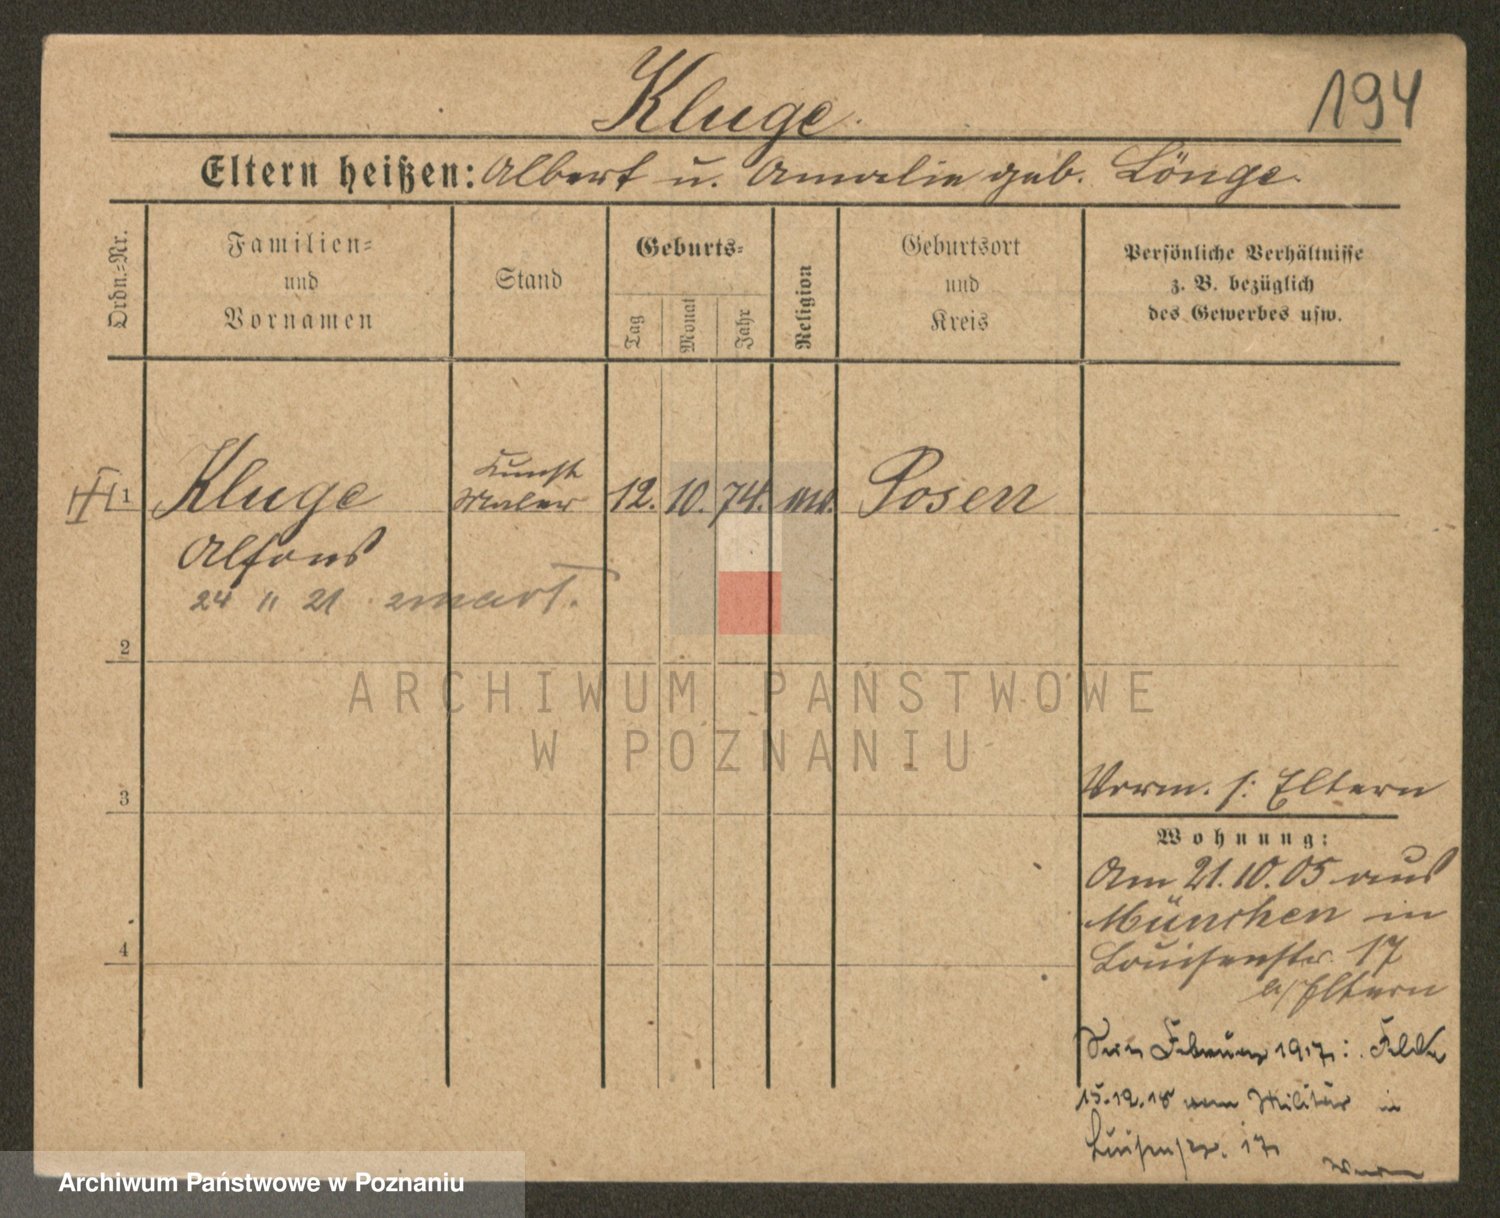 Kluge.
194
Eltern heißen: Albert u. Amalie geb. Lönge.
Ordn.=Nr.
Familien=
und
Vornamen
Stand
Geburts=
Tag
Monat
Jahr
Religion
Geburtsort
und
Kreis
Persönliche Verhältnisse
z. B. bezüglich
des Gewerbes usw.
1
Kluge
Kunst
Maler
12. 10. 74.
Posen
Alfons
24 11 21 zmarł.
2
ARCHIWUM PAŃSTWOWE
W POZNANIU
3
Vorm. s: Eltern
Wohnung:
Am 21.10.05 aus
München in
4
Louisenstr. 17
b/ Eltern
Februar 1917:
15.12.18 vom Militär in
Luisenstr. 17
Archiwum Państwowe w Poznaniu